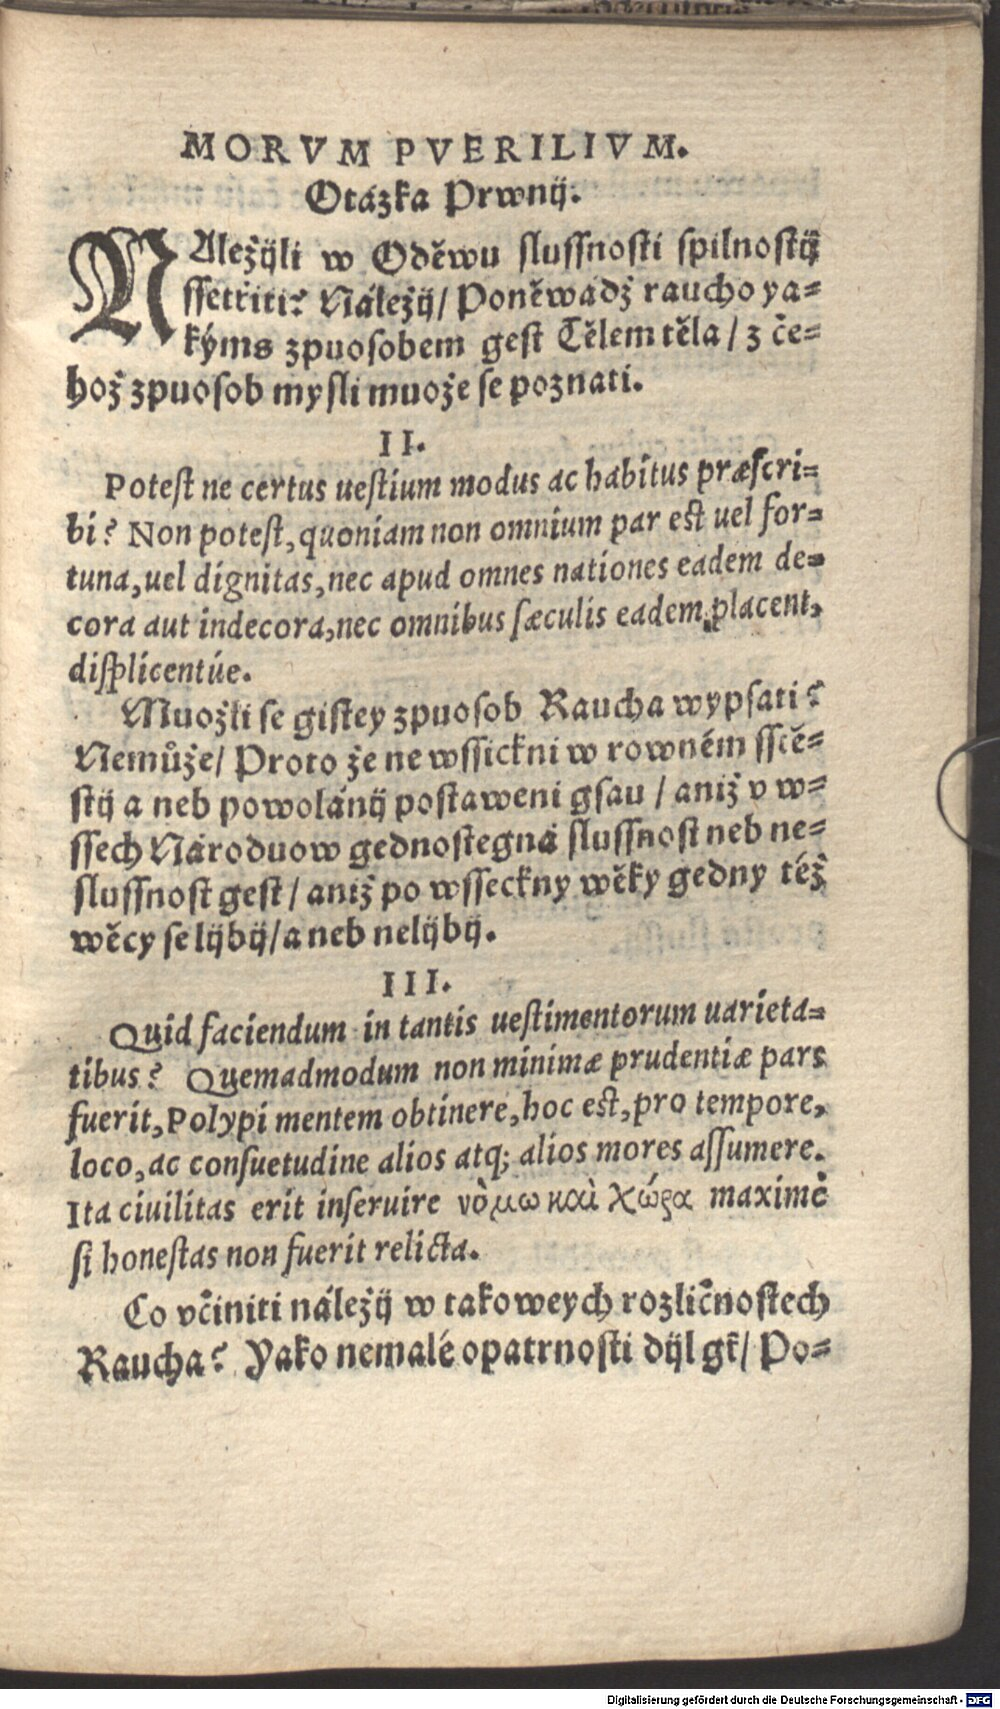 MORVM PVERILIVM.
Otázka Prwnij.
NAležijli w Oděwu slussnosti spilnostij
ssetřiti? Náležij/ Poněwádž raucho ya=
kýms zpuosobem gest Tělem těla / z če=
hož zpuosob mysli muože se poznati.
II.
Potest ne certus uestium modus ac habitus præscri=
bi? Non potest, quoniam non omnium par est uel for=
tuna, uel dignitas, nec apud omnes nationes eadem de=
cora aut indecora, nec omnibus sæculis eadem placent,
displicentúe.
Muožli se gistey zpuosob Raucha wypsati?
Nemůže/ Proto že ne wssickni w rowném sstě=
stij a neb powolánij postaweni gsau / aniž v w=
ssech Národuow gednostegná slussnost neb ne=
slussnost gest / aniž po wsseckny wěky gedny též
wěcy se lijbij/ a neb nelijbij.
III.
Quid faciendum in tantis uestimentorum uarieta=
tibus? Quemadmodum non minimæ prudentiæ pars
fuerit, Polypi mentem obtinere, hoc est, pro tempore,
loco, ac consuetudine alios atq; alios mores assumere.
Ita ciuilitas erit inseruire νὸμω καὶ χώρα maximè
si honestas non fuerit relicta.
Co včiniti náležij w takoweych rozličnostech
Raucha? Yako nemalé opatrnosti dijl gt/ Po=
Digitalisierung gefördert durch die Deutsche Forschungsgemeinschaft - DFG